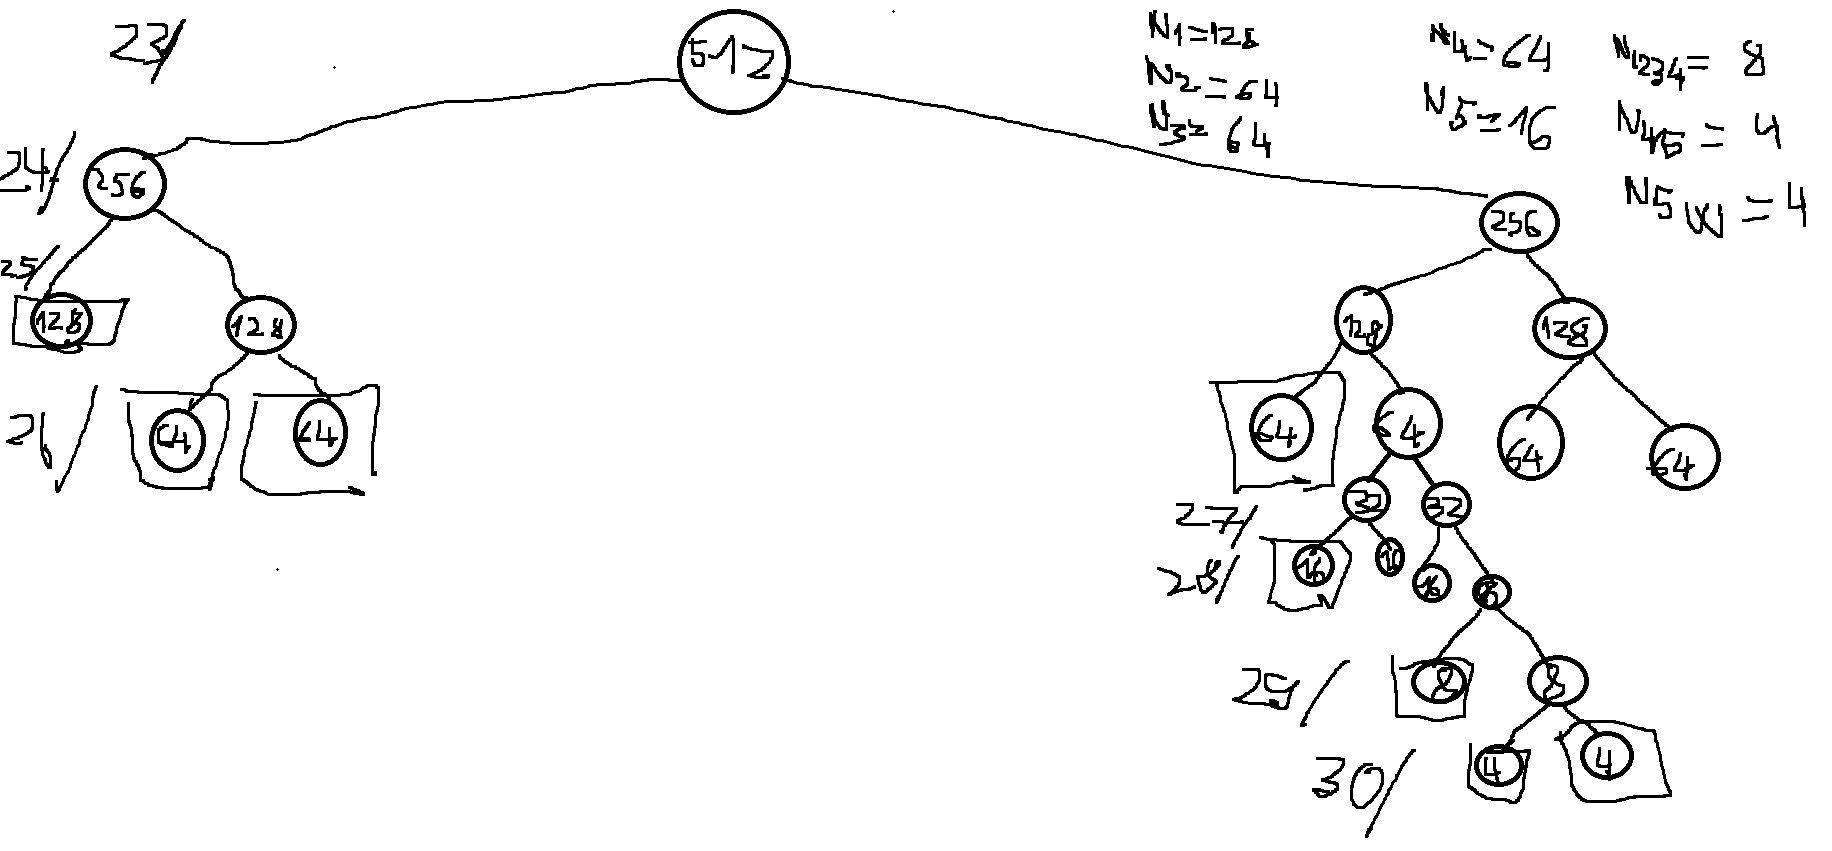 23/
512
N1=128
N4=64
N1234= 8
N2=64
N5=16
N45 = 4
N3= 64
N5W = 4
24/
256
256
25/
128
128
128
128
26/
64
64
64
64
64
64
27/
32
32
28/
16
16
16
29/
8
8
30/
4
4